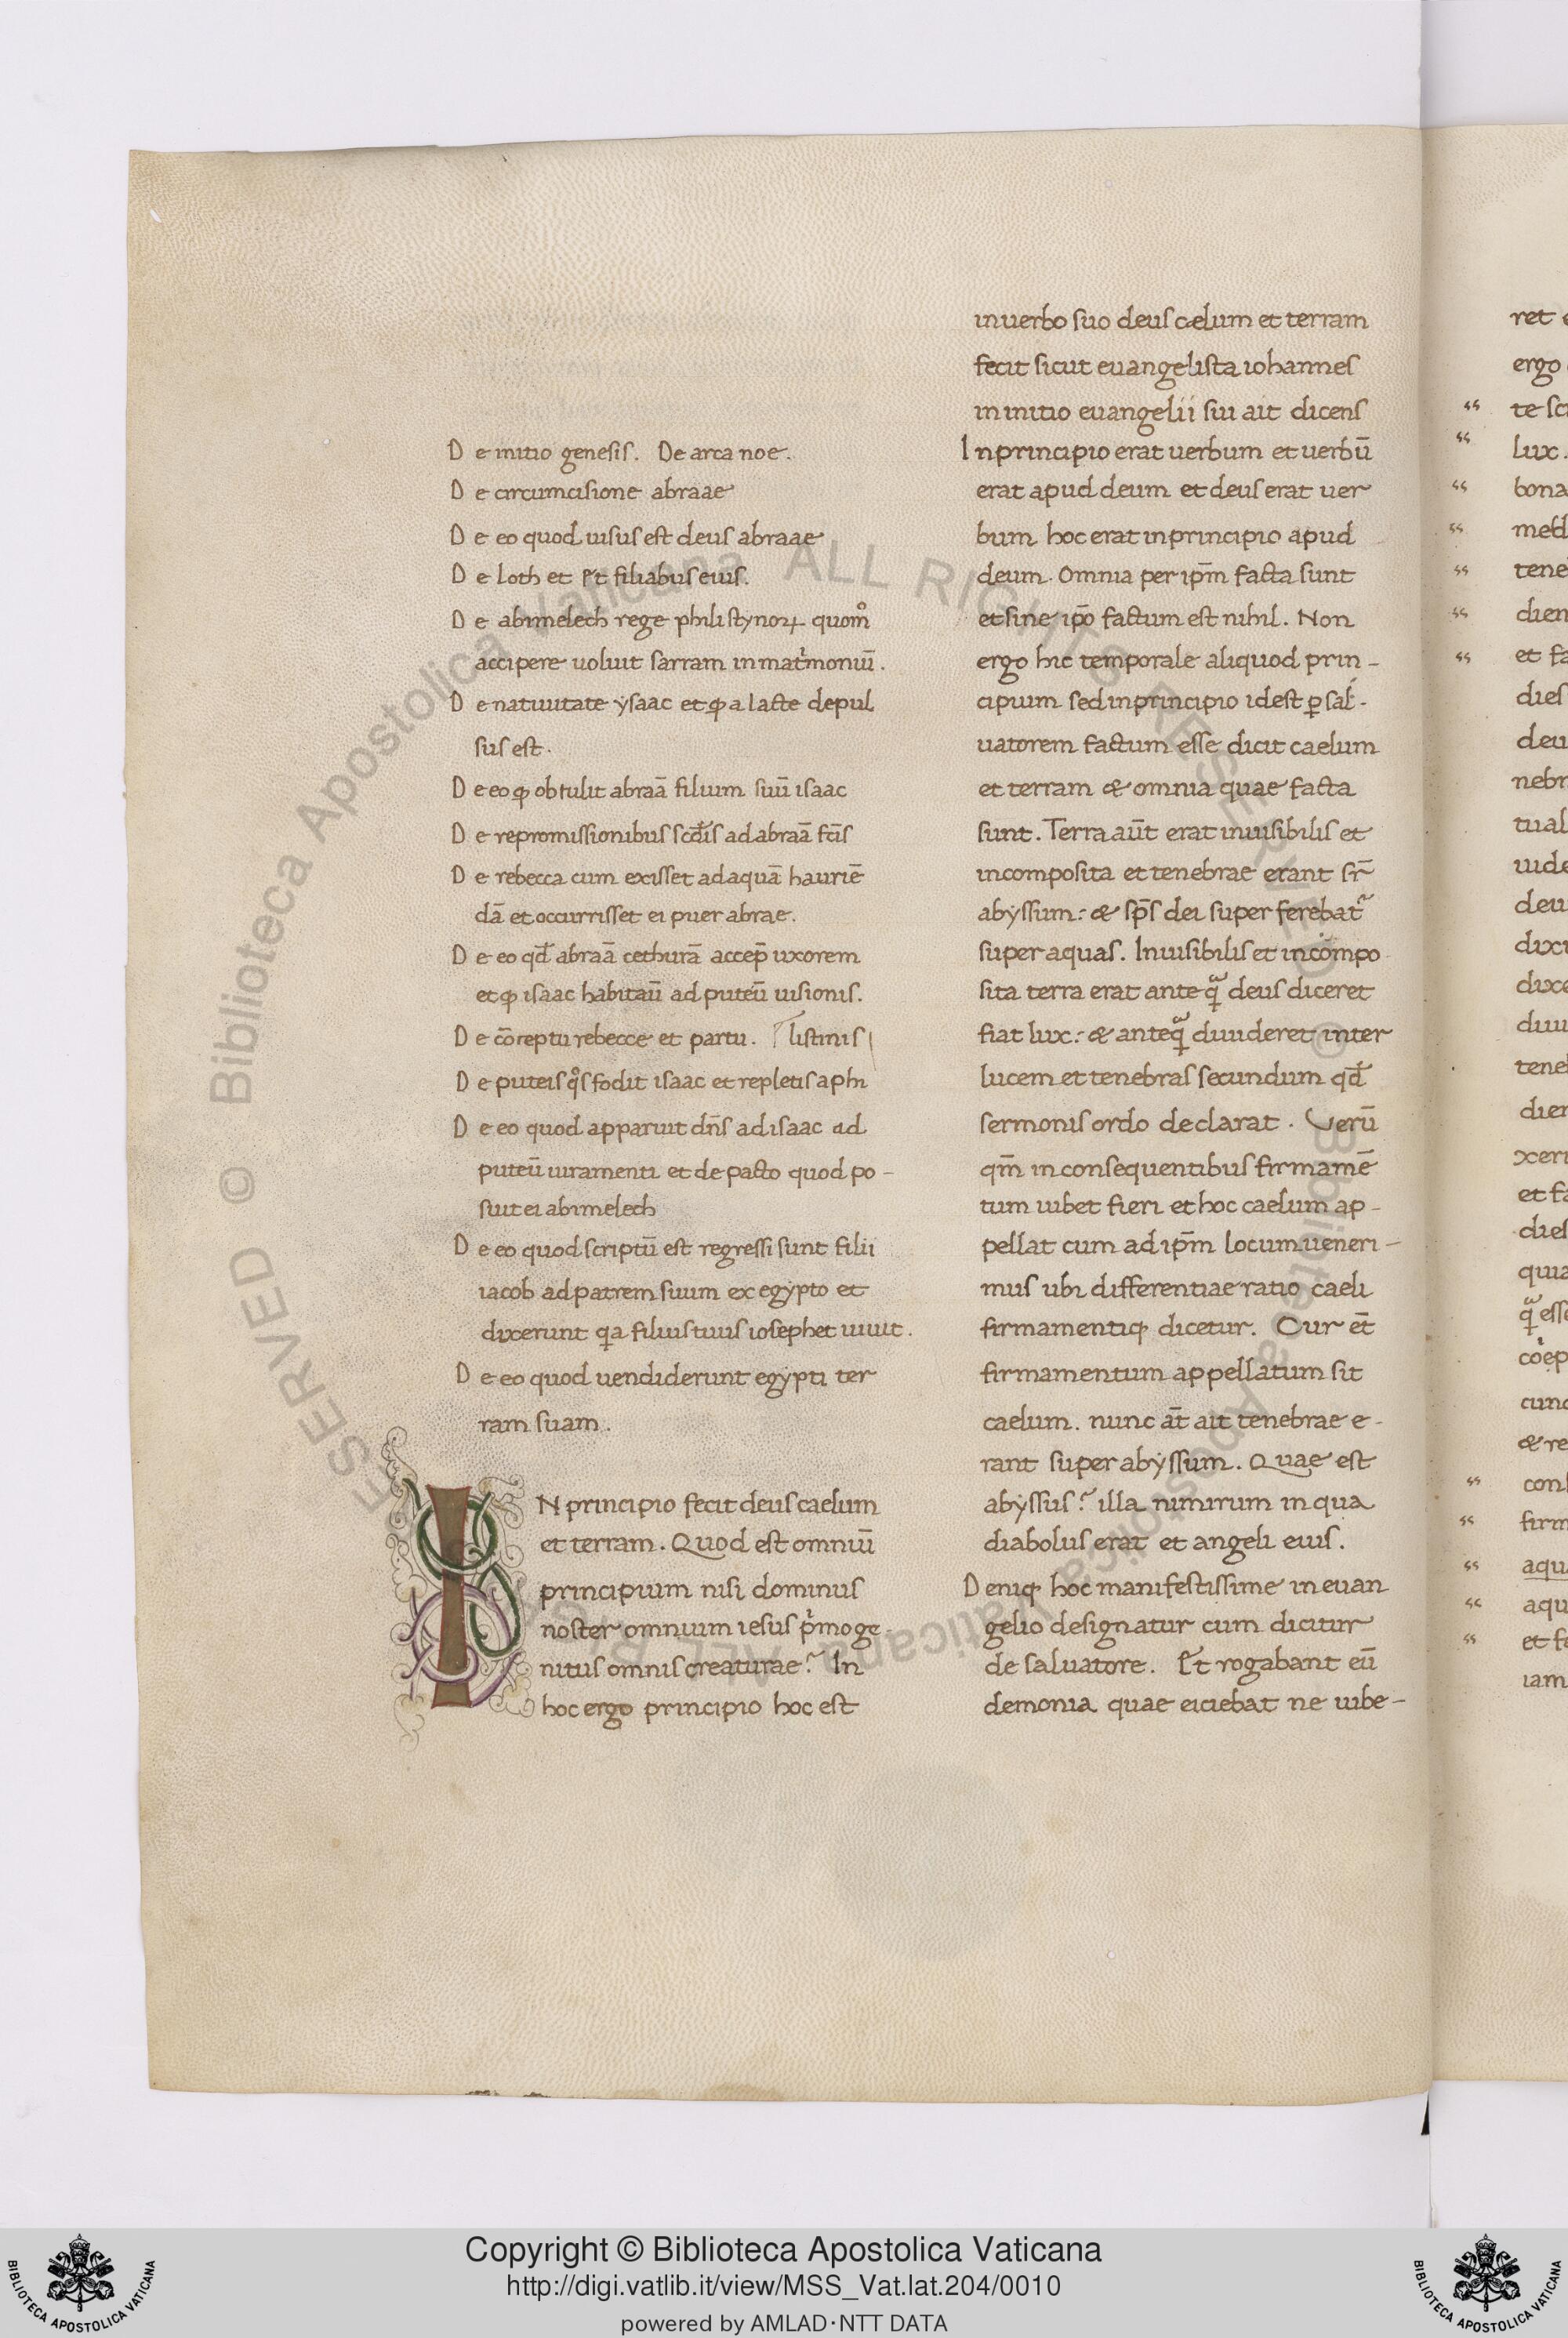 De initio genesis. De arca noe.
De circumcisione abraae
De eo quod uisus est deus abraae
De loth et Et filiabus eius.
De abimelech rege philistynoꝝ quom̊
accipere uoluit sarram in matͥmoniū.
De natiuitate ysaac et ꝙ a lacte depul
sus est.
De eo ꝙ obtulit abraā filium suū isaac
De repromissionibus ad abraā fc̄is
De rebecca cum exisset ad aquā hauriē
dā et occurrisset ei puer abrae.
De eo qd̄ abraā cethurā accep̄ uxorem
et ꝙ isaac habitaū ad puteū uisionis.
De cōceptu rebecce et partu. listinis
De puteis qͦs fodit isaac et repletis a phi
De eo quod apparuit dn̄s ad isaac ad
puteū iuramenti et de pacto quod po-
suit ei abimelech
De eo quod scriptū est regressi sunt filii
iacob ad patrem suum ex egypto et
dixerunt qͥa filius tuus ioseph et uiuit.
De eo quod uendiderunt egypti ter
ram suam.
IN principio fecit deus caelum
et terram. Quod est omniū
principium nisi dominus
noster omnium iesus pͥmoge-
nitus omnis creaturae? In
hoc ergo principio hoc est
in uerbo suo deus cælum et terram
fecit sicut euangelista iohannes
in initio euangelii sui ait dicens
In principio erat uerbum et uerbū
erat apud deum et deus erat uer
bum hoc erat in principio apud
deum. Omnia per ip̄m facta sunt
et sine ip̄o factum est nihil. Non
ergo hic temporale aliquod prin-
cipium sed in principio id est ꝑ sal-
uatorem factum esse dicit caelum
et terram & omnia quae facta
sunt. Terra aūt erat inuisibilis et
incomposita et tenebrae erant sr̄
abyssum: & sp̄s dei super ferebat᷑
super aquas. Inuisibilis et incompo
sita terra erat ante qͣ deus diceret
fiat lux: & anteqͣ diuideret inter
lucem et tenebras secundum qd̄
sermonis ordo declarat. Verū
qm̄ in consequentibus firmamē
tum iubet fieri et hoc caelum ap-
pellat cum ad ip̄m locum ueneri-
mus ubi differentiae ratio caeli
firmamentiqꝫ dicetur. Cur et̄
firmamentum appellatum sit
caelum. nunc at̄ ait tenebrae e-
rant super abyssum. Quae est
abyssus? illa nimirum in qua
diabolus erat et angeli eius.
Deniqꝫ hoc manifestissime in euan
gelio designatur cum dicitur
de saluatore. Et rogabant eū
demonia quae eiciebat ne iube-
ret
ergo
" te
" lux.
" bona
"
" tene
" dien
" et fa
dies
deu
nebr
tual
uide
deu
dixi
dixe
diui
tene
dier
xeri
et fa
dies
quia
qͣ esse
cunc
& re
" con
" firm
" aqu
" aqu
" et fe
iam
ALL RIGHTS RESERVED © Biblioteca Apostolica Vaticana
Copyright © Biblioteca Apostolica Vaticana
http://digi.vatlib.it/view/MSS_Vat.lat.204/0010
powered by AMLAD·NTT DATA
BIBLIOTECA APOSTOLICA VATICANA
BIBLIOTECA APOSTOLICA VATICANA